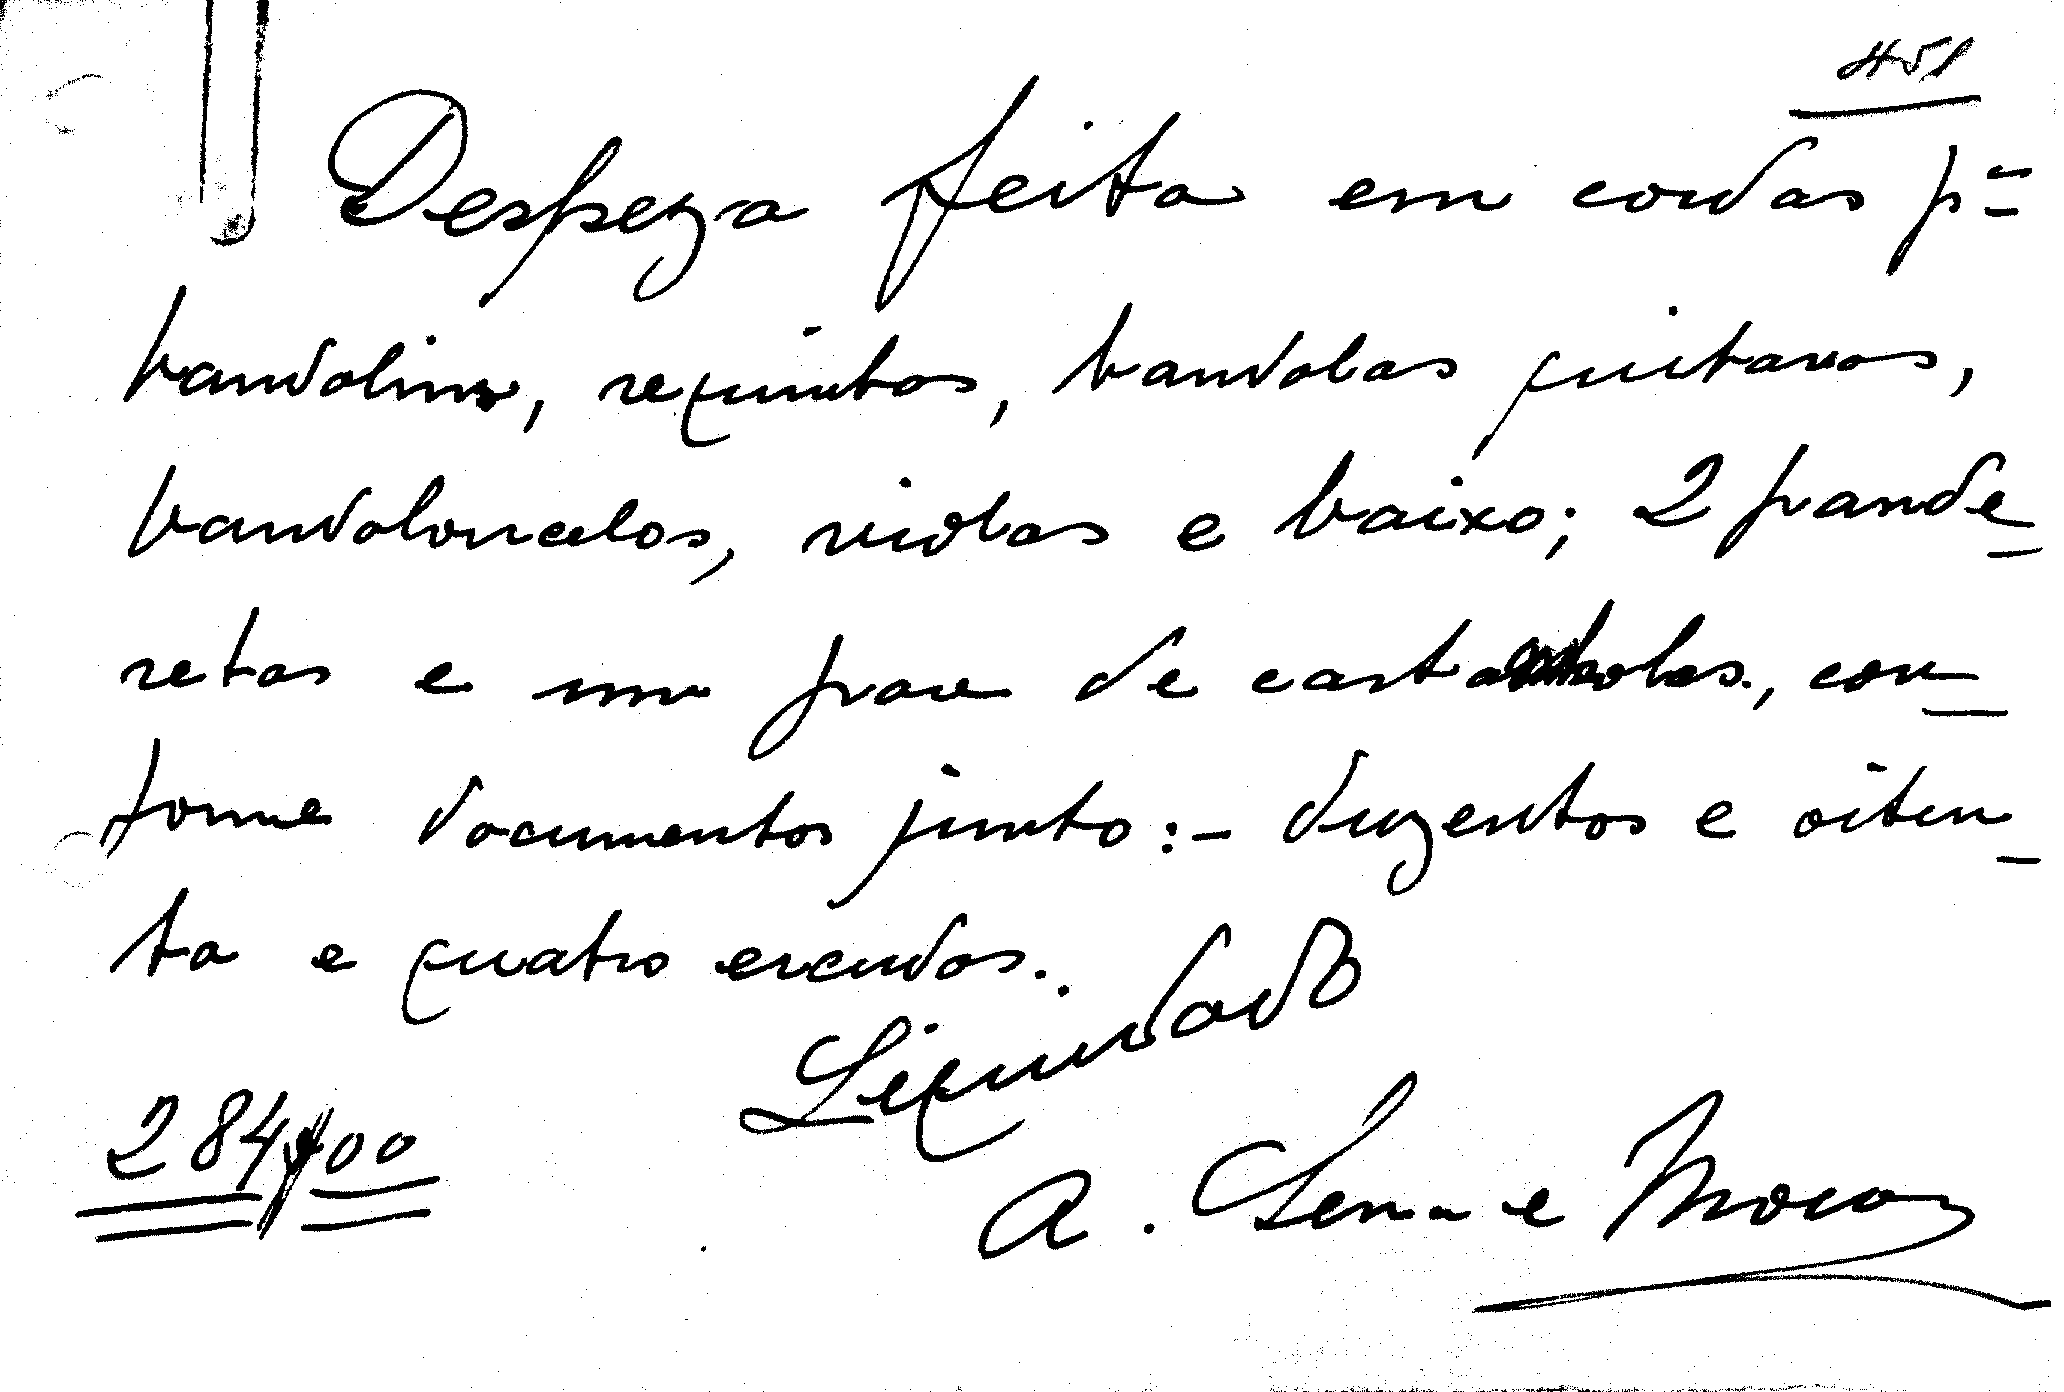 451
Despeza feita em cordas pª
bandolins, requintos, bandolas guitarras,
bandoloncelos, violas e baixo; 2 pande-
retas e um par de castanholas, con-
forme documentos junto:- duzentos e oiten-
ta e quatro escudos.
Liquidado
284$00
A. Sena e